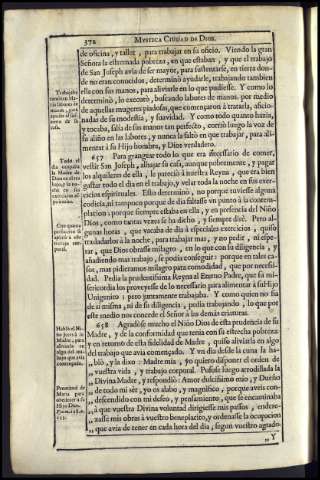 372
MYSTICA CIUDAD DE DIOS.
de oficina, y taller, para trabajar en su oficio. Viendo la gran
Señora la estremada pobreza, en que estaban, y que el trabajo
de San Joseph avia de ser mayor, para sustentarse, en tierra don-
de no eran conocidos, determinò ayudarle, trabajando tambien
ella con sus manos, para aliviarle en lo que pudiesse. Y como lo
determinò, lo executò, buscando labores de manos por medio
de aquellas mugeres piadosas, que començaron à tratarla, aficio-
nadas de su modestia, y suavidad. Y como todo quanto hazia,
y tocaba, salia de sus manos tan perfecto, corriò luego la voz de
su aliño en las labores, y nunca la faltò en que trabajar, para ali-
mentar à su Hijo hombre, y Dios verdadero.
657 Para grangear todo lo que era necessario de comer,
vestir San Joseph, alhajar su casa, aunque pobremente, y pagar
los alquileres de ella, le pareciò à nuestra Reyna, que era bien
gastar todo el dia en el trabajo, y velar toda la noche en sus exer-
cicios espirituales. Esto determinò, no porque tuviesse alguna
codicia, ni tampoco porque de dia faltasse un punto à la contem-
placion: porque siempre estaba en ella, y en presencia del Niño
Dios, como tantas vezes se ha dicho, y siempre dirè. Pero al-
gunas horas, que vacaba de dia à especiales exercicios, quiso
trasladarlos à la noche, para trabajar mas, y no pedir, ni espe-
rar, que Dios obrasse milagro, en lo que con su diligencia, y
añadiendo mas trabajo, se podia conseguir: porque en tales ca-
sos, mas pidieramos milagro para comodidad, que por necessi-
dad. Pedia la prudentissima Reyna al Eterno Padre, que su mi-
sericordia los proveyesse de lo necessario para alimentar à su Hijo
Unigenito: pero juntamente trabajaba. Y como quien no fia
de sì misma, ni de su diligencia, pedia trabajando, lo que por
este medio nos concede el Señor à las demàs criaturas.
658 Agradòse mucho el Niño Dios de esta prudencia de su
Madre, y de la conformidad que tenia con su estrecha pobreza
y en retorno de esta fidelidad de Madre, quiso aliviarla en algo
del trabajo que avia començado. Y un dia desde la cuna la ha-
„ blò, y la dixo: Madre mia, yo quiero disponer el orden de
„ vuestra vida, y trabajo corporal. Pusose luego arrodillada la
„ Divina Madre, y respondiò: Amor dulcissimo mio, y Dueño
„ de todo mi sèr, yo os alabo, y magnifico, porque aveis con-
„ descendido con mi deseo, y pensamiento, que se encaminaba
„ à que vuestra Divina voluntad dirigiesse mis passos, endere-
„ zasse mis obras à vuestro beneplacito, y ordenasse la ocupacion
„ que avia de tener en cada hora del dia, segun vuestro agrado
„ Y